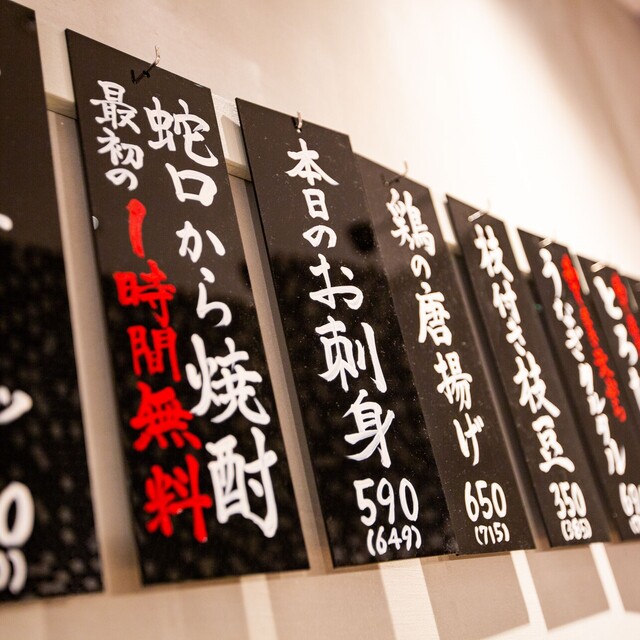 蛇口から焼酎
最初の1時間無料
本日のお刺身
590
(649)
鶏の唐揚げ
650
(715)
枝付き枝豆
350
(385)
うなぎタルタル